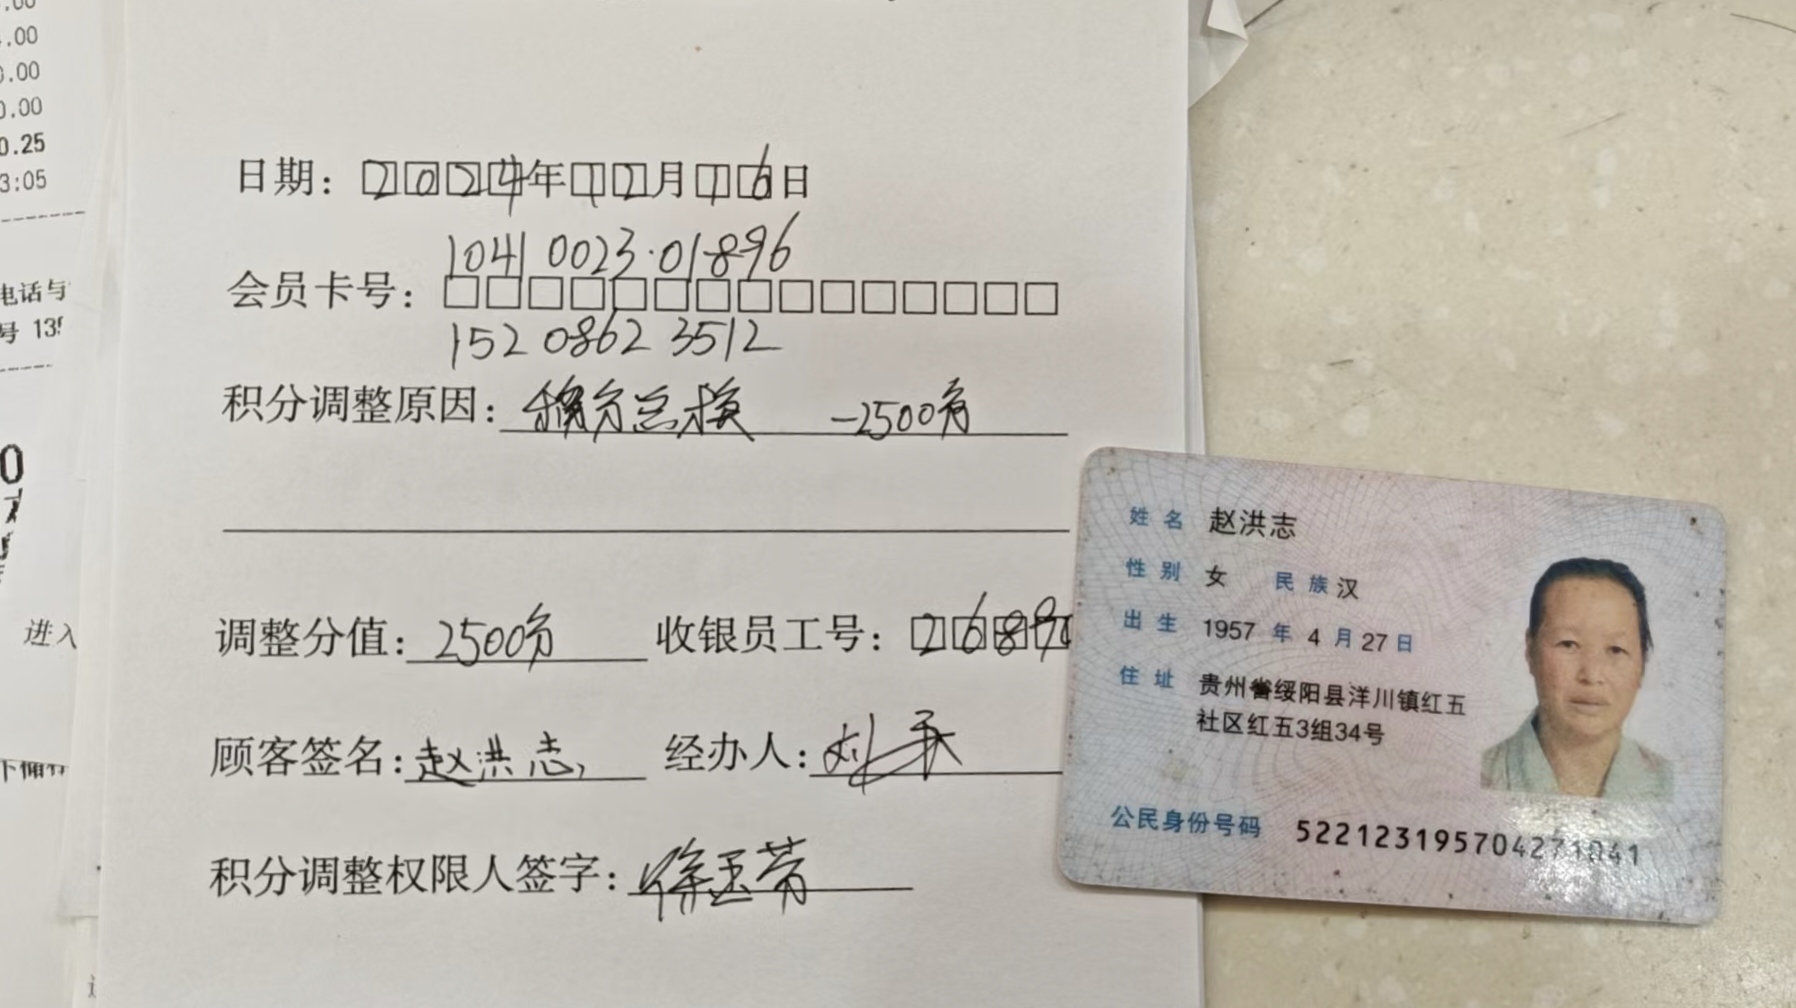 .00
.00
0.00
0.00
0.25
3:05
电话与
号 135
进入
日期：2024年12月16日
1041 0023·01896
会员卡号：
152 0862 3512
积分调整原因：积分兑换 -2500分
调整分值：2500分 收银员工号：2689
顾客签名：赵洪志
经办人：
积分调整权限人签字：徐玉芳
姓名 赵洪志
性别 女 民族 汉
出生 1957年4月27日
住址 贵州省绥阳县洋川镇红五
社区红五3组34号
公民身份号码 522123195704271041